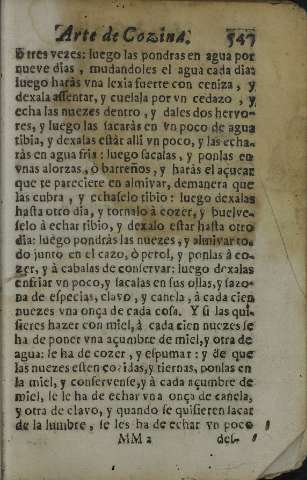 Arte de Cozina. 547
ò tres vezes: luego las pondras en agua por
nueve dias, mudandoles el agua cada dia:
luego haràs vna lexia fuerte con ceniza, y
dexala assentar, y cuelala por vn cedazo, y
echa las nuezes dentro, y dales dos hervo-
res, y luego las sacaràs en vn poco de agua
tibia, y dexalas estàr alli vn poco, y las echa-
ràs en agua fria: luego sacalas, y ponlas en
vnas alorzas, ò barreños, y haràs el açucar
que te pareciere en almivar, demanera que
las cubra, y echaselo tibio: luego dexalas
hasta otro dia, y tornalo à cozer, y buelve-
selo à echar tibio, y dexalo estar hasta otro
dia: luego pondràs las nuezes, y almivar to-
do junto en el cazo, ò perol, y ponlas à co-
zer, y à cabalas de conservar: luego dexalas
enfriar vn poco, y sacalas en sus ollas, y sazo-
na de especias, clavo, y canela, à cada cien
nuezes vna onça de cada cosa. Y si las qui-
sieres hazer con miel, à cada cien nuezes se
ha de poner vna açumbre de miel, y otra de
agua: le ha de cozer, y espumar: y de que
las nuezes esten cozidas, y tiernas, ponlas en
la miel, y conservente, y à cada açumbre de
miel, se le ha de echar vna onça de canela,
y otra de clavo, y quando se quisieren sacar
de la lumbre, se les ha de echar vn poco
MM 2 del